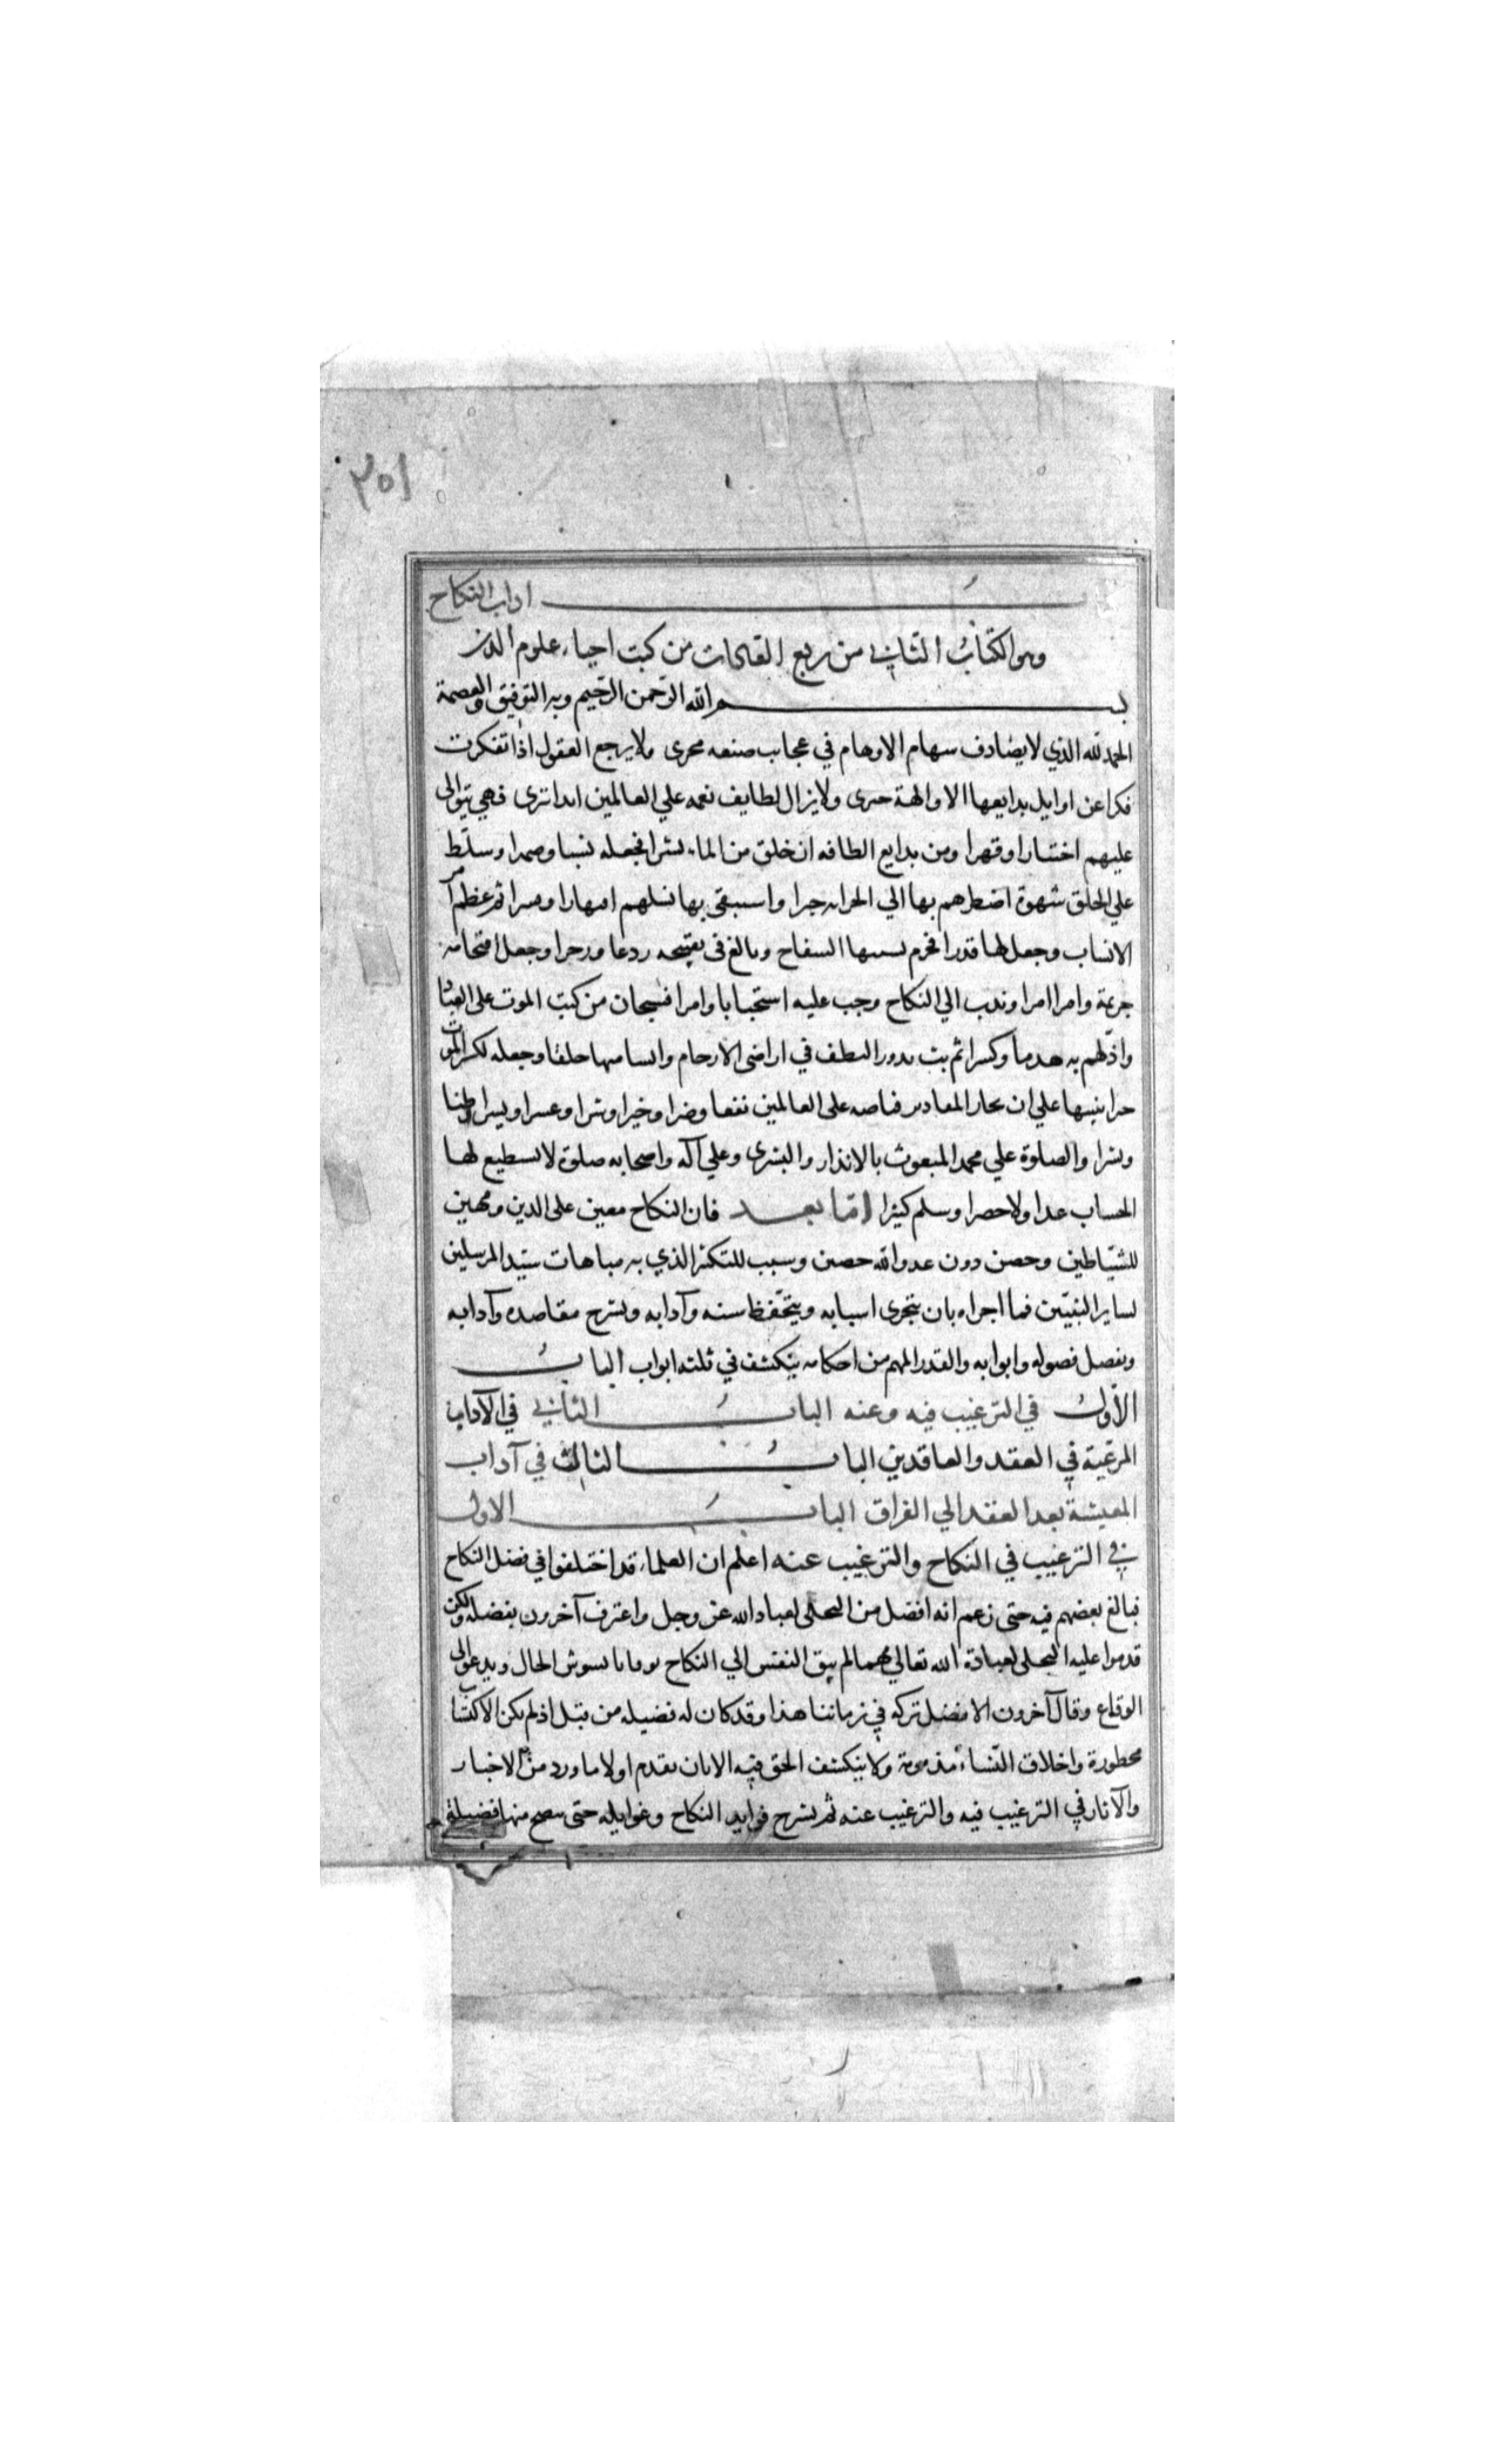 ٢٥١
اداب النكاح
وهو الكتاب الثاني من ربع العادات من كتب احياء علوم الدين
بسم الله الرحمن الرحيم وبه التوفيق والعصمة
الحمد لله الذي لا يصادف سهام الاوهام في عجايب صنعه مجرى ولا يرجع العقول اذا تفكرت
فكرا عن اوايل بدايعها الا والهة حيرى ولا يزال لطايف نعمه علي العالمين ابدا تترى فهي تتوالى
عليهم اختيارا وقهرا ومن بدايع الطافه ان خلق من الماء بشرا فجعله نسبا وصهرا وسلط
علي الخلق شهوة اضطرهم بها الي الحراثه جبرا واستبقى بها نسلهم اقهارا وقسرا ثم عظم امر
الانساب وجعل لها قدرا فحرم بسببها السفاح وبالغ في تقبيحه ردعا وزجرا وجعل اقتحامه
جريمة وامرا امرا وندب الي النكاح وحب عليه استحبابا وامرا فسبحان من كتب الموت على العباد
واذلهم به هدما وكسرا ثم بث بذور النطف في اراضي الارحام وانشا منها خلقا وجعله لكسر الموت
جبرا تنبيها علي ان بحار المقادير فياضه على العالمين نفعا وضرا وخيرا وشرا وعسرا ويسرا وطيا
ونشرا والصلوة علي محمد المبعوث بالانذار والبشرى وعلي آله واصحابه صلوة لا يستطيع لها
الحساب عدا ولا حصرا وسلم كثيرا اما بعد فان النكاح معين على الدين ومهين
للشياطين وحصن دون عدو الله حصين وسبب للتكثر الذي به مباهات سيد المرسلين
لساير النبيين فما احراه بان يتحرى اسبابه ويتحفظ سننه وآدابه ويشرح مقاصده وآدابه
ويفصل فصوله وابوابه والقدر المهم من احكامه ينكشف في ثلثه ابواب الباب
الاول في الترغيب فيه وعنه الباب الثاني في الآداب
المرعية في العقد والعاقدين الباب الثالث في آداب
المعيشة بعد العقد الي الفراق الباب الاول
في الترغيب في النكاح والترغيب عنه اعلم ان العلماء قد اختلفوا في فضل النكاح
فبالغ بعضهم فيه حتى زعم انه افضل من التخلي لعباد الله عز وجل واعترف آخرون بفضله ولكن
قدموا عليه التخلي لعبادة الله تعالي مهما لم يتق النفس الي النكاح توقانا يشوش الحال ويدعو الى
الوقاع وقال آخرون الافضل تركه في زماننا هذا وقد كان له فضيله من قبل اذ لم يكن الاكتساب
محظورة واخلاق النساء مذمومة ولا ينكشف الحق فيه الا بان يقدم اولا ما ورد من الاخبار
والآثار في الترغيب فيه والترغيب عنه ثم يشرح فوايد النكاح وغوايله حتى يتضح منها فضيلة